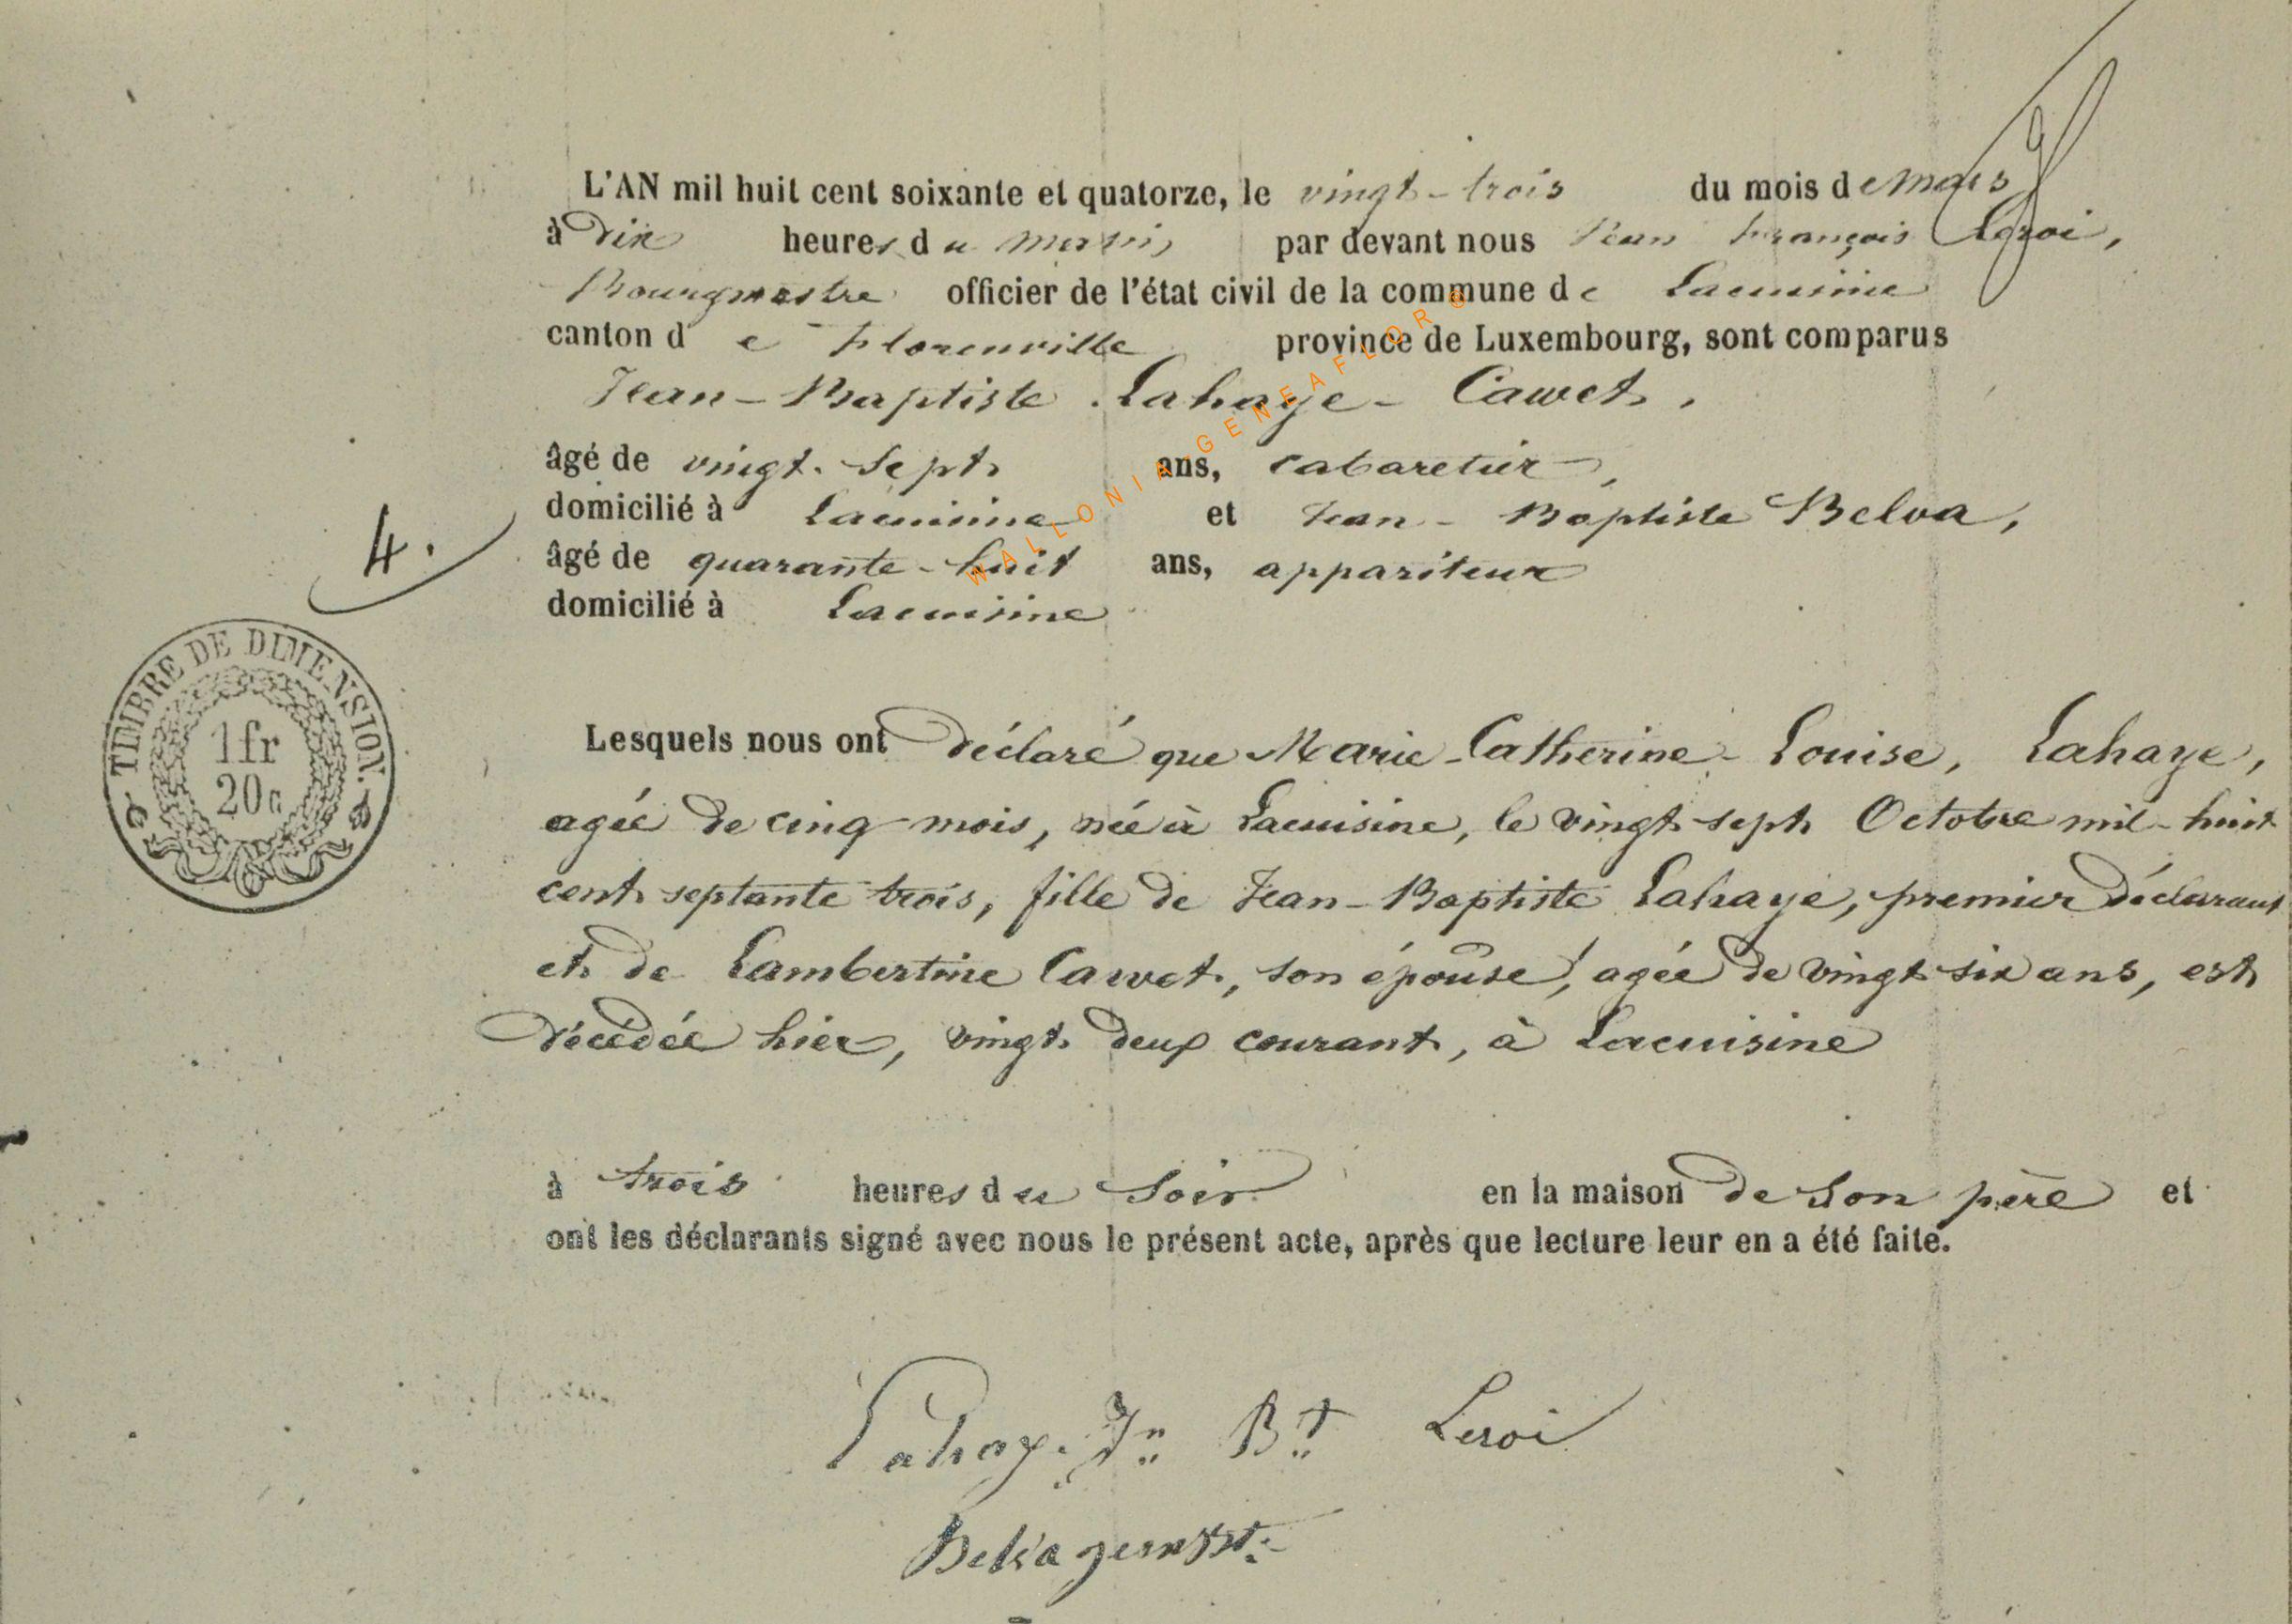 L'AN mil huit cent soixante et quatorze, le vingt-trois du mois de Mars
à dix heures du matin par devant nous Jean François Leroi,
Bourgmestre officier de l'état civil de la commune de Lacuisine
canton de Florenville province de Luxembourg, sont comparus
Jean-Baptiste Lahaye-Cawet,
âgé de vingt-sept ans, cabaretier,
domicilié à Lacuisine et Jean-Baptiste Belva,
4.
âgé de quarante-huit ans, appariteur
domicilié à Lacuisine
TIMBRE DE DIMENSION.
1 fr
20 c
Lesquels nous ont déclaré que Marie-Catherine-Louise, Lahaye,
agée de cinq mois, née à Lacuisine, le vingt sept Octobre mil-huit
cent septante trois, fille de Jean-Baptiste Lahaye, premier déclarant
et de Lambertine Cawet, son épouse, agée de vingt six ans, est
décédée hier, vingt deux courant, à Lacuisine
à trois heures du soir en la maison de son père et
ont les déclarants signé avec nous le présent acte, après que lecture leur en a été faite.
Lahaye Jn Bt Leroi
Belva
WALLONIA-GENEAFLOR©